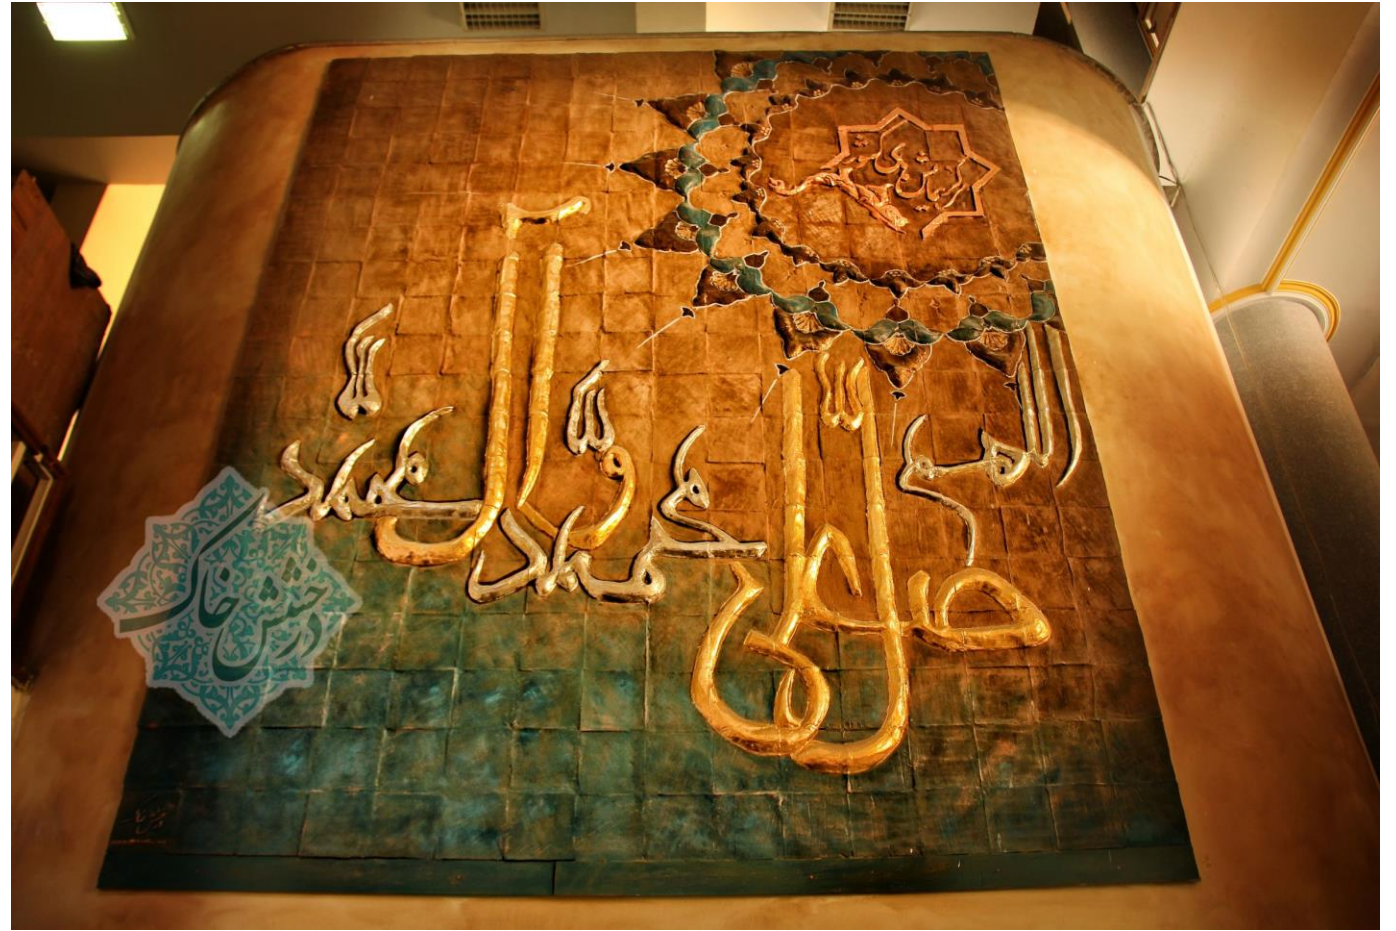 اللهم صل علی محمد و آل محمد
درخشش خاک